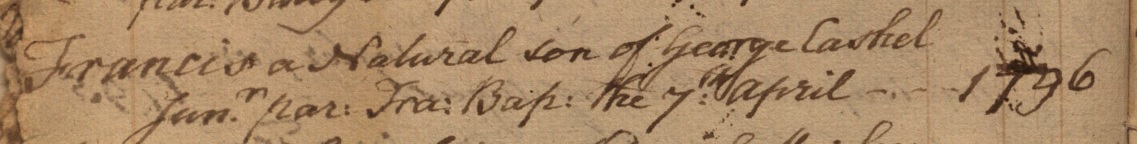 Francis a Natural son of George Cashel
Junr. par: Tra: Bap: the 7th April - - - 1736